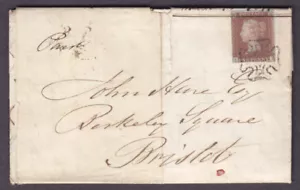 Paid
John Hare Esq
Berkeley Square
Bristol